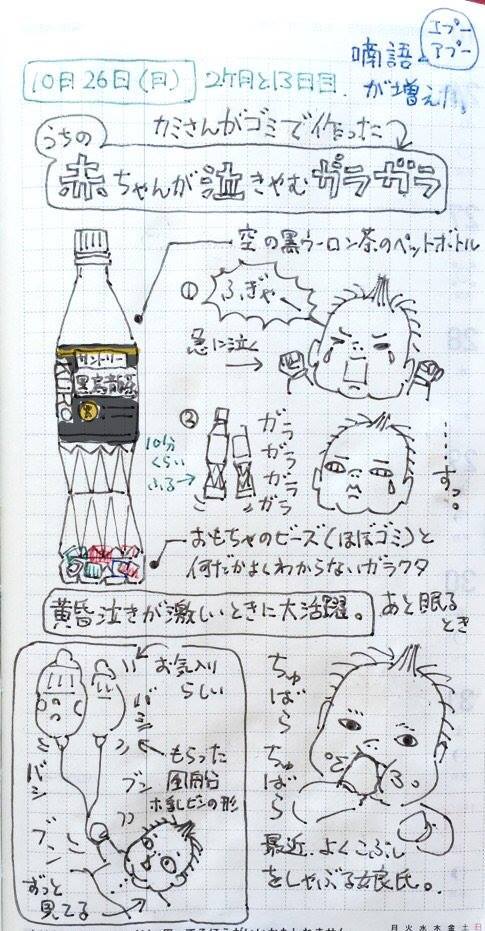 エプー
アプー
喃語
が増えた。
10月26日(月) 2ヶ月と13日目.
カミさんがゴミで作った
うちの
赤ちゃんが泣きやむガラガラ
空の黒ウーロン茶のペットボトル
① ふぎゃー
急に泣く
サントリー
黒烏龍茶
KURO
②
10分
くらい
ふる→
ガラガラガラ
……すっ。
おもちゃのビーズ(ほぼゴミ)と
何だかよくわからないガラクタ
黄昏泣きが激しいときに大活躍。
あと眠る
とき
お気入り
らしい
バシ
ブン
もらった
風船
ホ乳ビンの形
バシ
ブーン
ずっと
見てる
ちゅばら
ちゅばら
最近、よくこぶし
をしゃぶる娘氏。
月 火 水 木 金 土 日